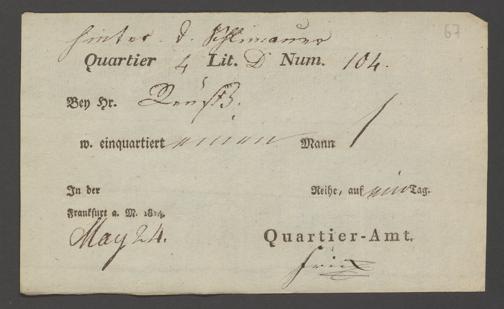 67
hinter d. Schlimauer
Quartier 4 Lit. D Num. 104.
Bey Hr. Reuß.
w. einquartiert einen Mann 1
In der Reihe, auf ein Tag.
Frankfurt a. M. 1814.
May 24.
Quartier-Amt.